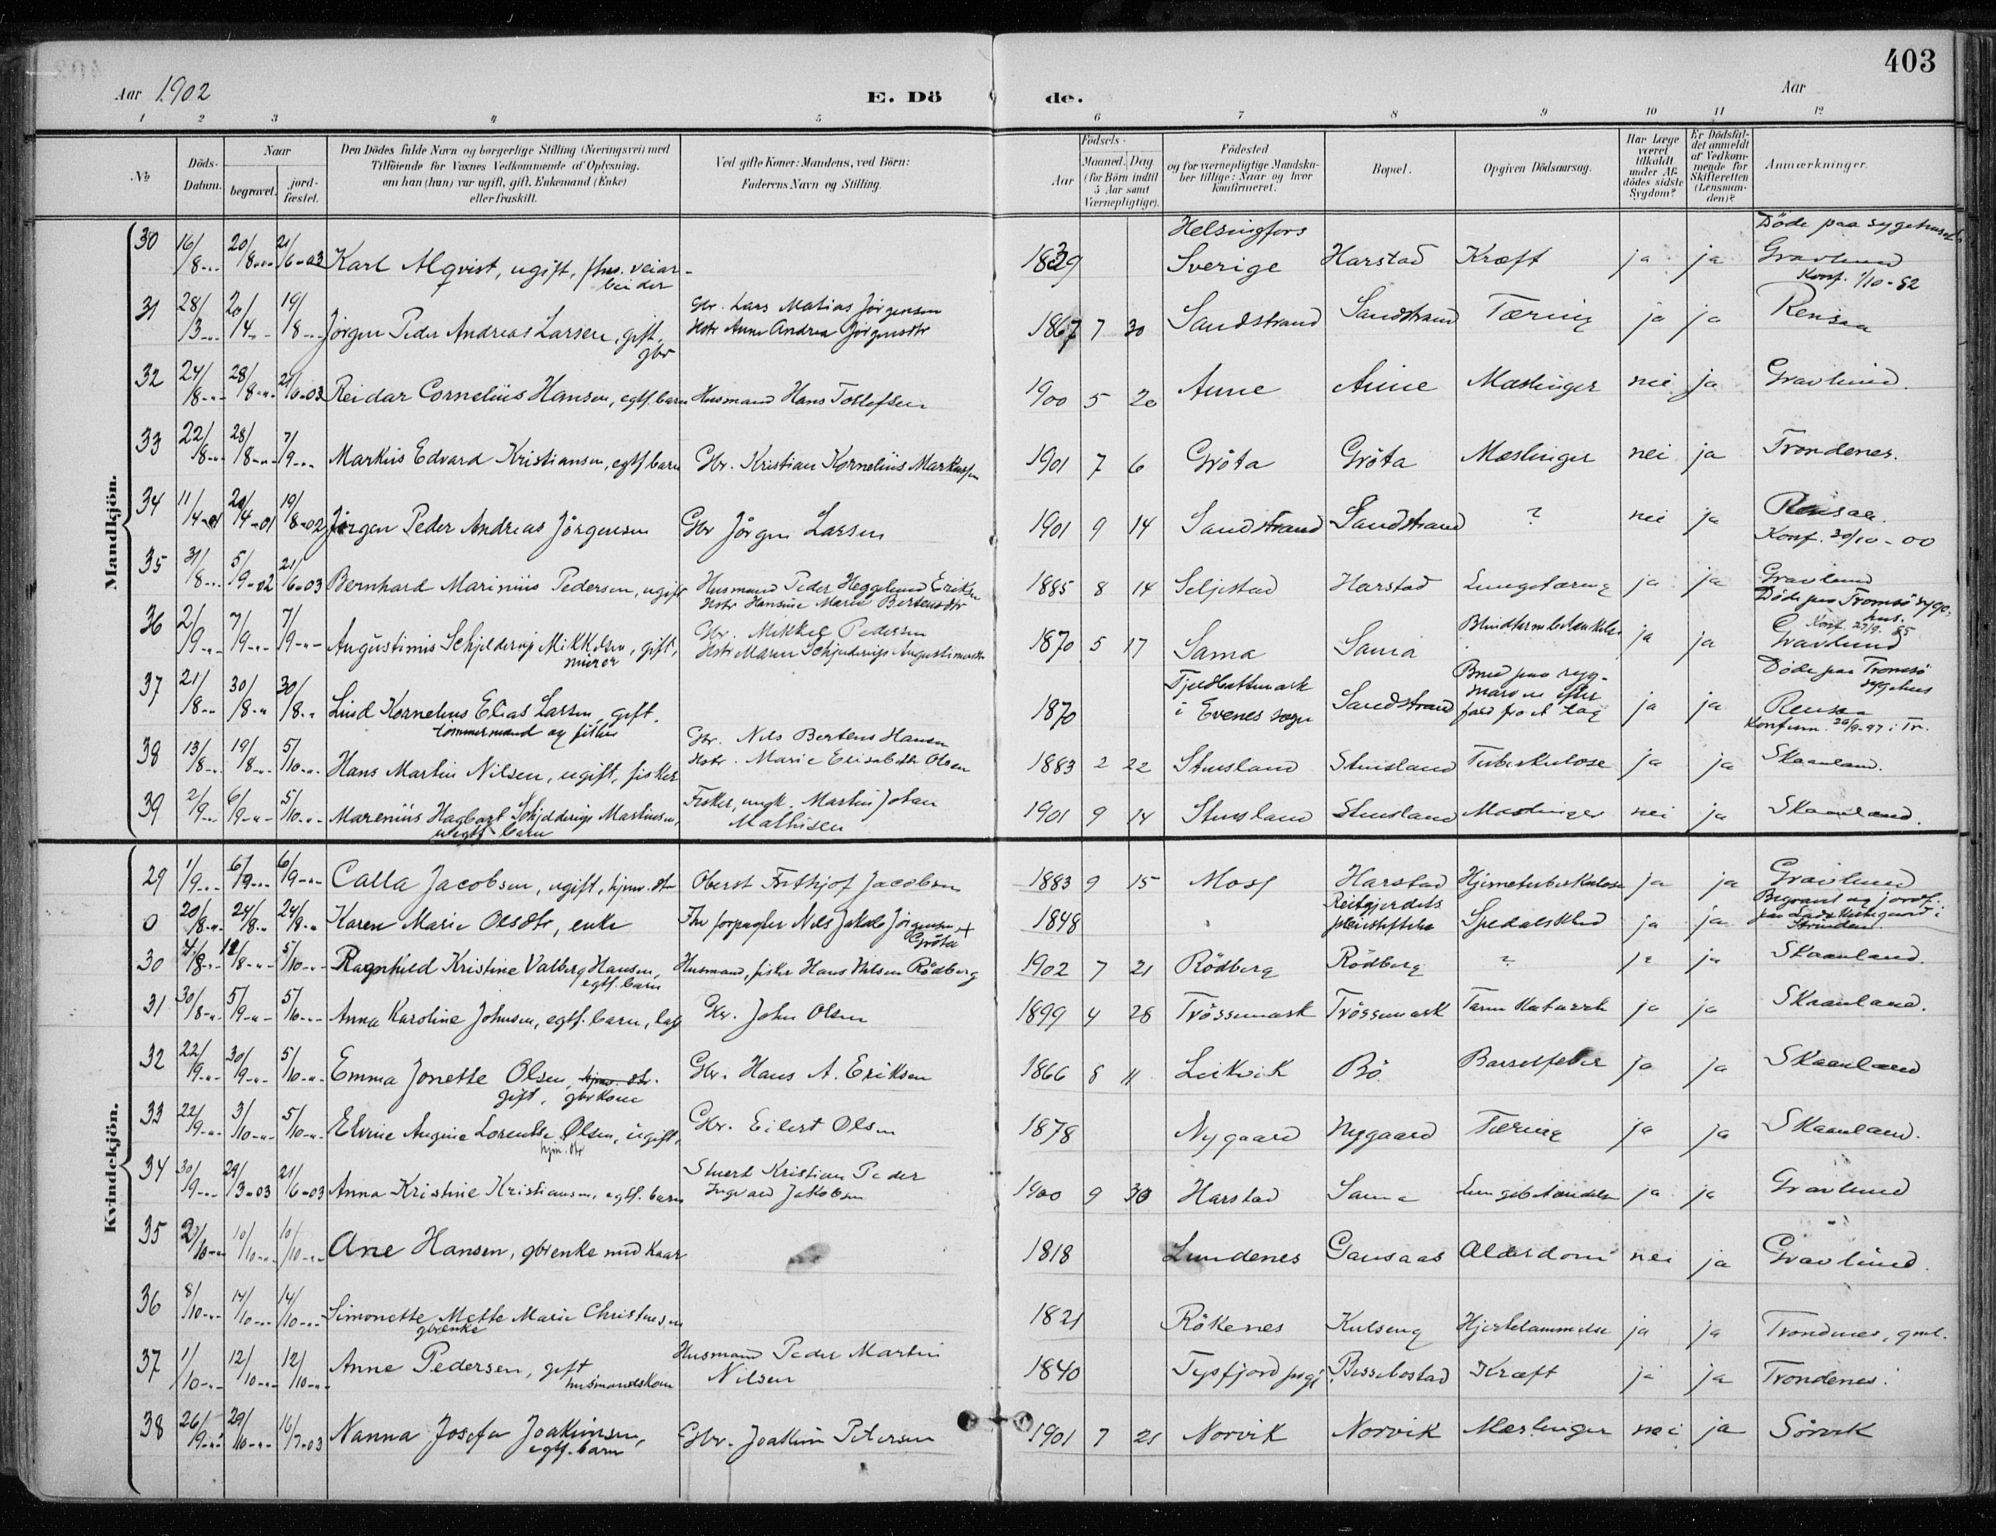 403
Aar 1902
E. Dö
de.
Aar
1 2 3 4 5 6 7 8 9 10 11 12
No
Döds-Datum.
Naar
begravet.
jord-fæstet.
Den Dödes fulde Navn og borgerlige Stilling (Næringsvei) med
Tilföiende for Voxnes Vedkommende af Oplysning,
om han (hun) var ugift, gift, Enkemand (Enke)
eller fraskilt.
Ved gifte Koner: Mandens, ved Börn:
Faderens Navn og Stilling.
Födsels-
Aar
Maaned. Dag.
(for Börn indtil
5 Aar samt
Værnepligtige).
Födested
og for værnepligtige Mandska-
ber tillige: Naar og hvor
konfirmeret.
Bopæl.
Opgiven Dödsaarsag.
Har Læge
været
tilkaldt
under Af-
dödes sidste
Sygdom?
Er Dödsfal-
det anmeldt
af Vedkom-
mende for
Skifteretten
(Lensman-
den)?
Anmærkninger.
Mandkjön.
Helsingfors
Döde paa sygehuset
30 16/8 20/8 21/6-03 Karl Alqvist, ugift, veiar- 1839 Sverige Harstad Kræft ja ja Gravlund
beider
Konf. 1/10-82
Gbr. Lars Matias Jørgensen
31 28/3 20/4 19/8 Jørgen Peder Andreas Larsen, gift, Hstr Anne Andrea Jörgensdtr 1867 7 30 Sandstrand Sandstrand Tæring ja ja Rensaa
gbr
32 24/8 28/8 21/10-03 Reidar Cornelius Hansen, egtf. barn Husmand Hans Tollefsen 1900 5 20 Aune Aune Mæslinger nei ja Gravlund.
33 22/8 28/8 7/9 Markus Edvard Kristiansen, egtf barn Gbr. Kristian Kornelius Markussen 1901 7 6 Gröta Gröta Mæslinger nei ja Trondenes.
34 11/4-01 20/4-01 19/8-02 Jörgen Peder Andreas Jörgensen Gbr Jörgen Larsen 1901 9 14 Sandstrand Sandstrand ? nei ja Rensaa.
Konf. 30/10-00
35 31/8 5/9-02 21/6-03 Bernhard Marinius Pedersen, ugift Husmand Peder Hegglund Eriksen 1885 8 14 Seljestad Harstad Lungetæring ja ja Gravlund
Hstr Hansine Marie Bertensdtr
Döde paa Tromsö syge-
hus.
Konf. 27/9. 85
36 2/9 7/9 7/9 Augustinus Schjelderup Mikkelsen, gift, Gbr. Mikkel Pedersen 1870 5 17 Sama Sama Blindtarmbetændelse ja ja Gravlund
murer
Hstr Maren Schjelderup Augustinusdtr
Döde paa Tromsö
sygehus
37 21/8 30/8 30/8 Lind Kornelius Elias Larsen, gift. 1870 Fjeldbattmark Sandstrand Brud paa ryg- ja ja Rensaa
tömmermand og fisker
i Evenes sogn
marven efter
fald fra et tag
Konfirm. 26/9-97 i Tr.
38 13/8 19/8 5/10 Hans Martin Nilsen, ugift, fisker Gbr. Nils Bertens Hansen 1883 2 22 Stusland Stusland Tuberkulose ja ja Skaanland.
Hstr. Marie Elisabeth Olsen
39 2/9 6/9 5/10 Marenius Hagbart Schjelderup Martinsen, Fisker, ungk. Martin Johan 1901 9 14 Stusland Stusland Mæslinger nei ja Skaanland.
uegtf. barn
Mathisen
Kvindekjön.
29 1/9 6/9 6/9 Calla Jacobsen, ugift, hjmv. dtr Oberst Frithjof Jacobsen 1883 9 15 Moss Harstad Hjernetuberkulose ja ja Gravlund
0 20/8 24/8 24/8 Karen Marie Olsdtr, enke Fhv forpagter Nils Jakob Jörgensen + 1848 Reitgjerdets Spedalskhed ja ja Begravet og jordf.
Gröta
pleiestiftelse
paa Lade kirkegaard i
Strinden.
30 12/8 5/10 Ragnhild Kristine Valborg Hansen, Husmand, fisker Hans Nilsen Rödberg 1902 7 21 Rödberg Rödberg ? ja ja Skaanland.
egtf. barn
31 30/8 5/9 5/10 Anna Karoline Johnsen, egtf. barn, Gbr. John Olsen 1899 4 28 Trössemark Trössemark Tarm Katarrh ja ja Skaanland.
32 22/9 30/9 5/10 Emma Jonette Olsen, hjmv. dtr. Gbr. Hans A. Eriksen 1866 8 11 Leikvik Bö Barselfeber ja ja Skaanland
gift, gbrkone
33 22/9 3/10 5/10 Elvine Augine Lorentse Olsen, ugift, Gbr. Eilert Olsen 1878 Nygaard Nygaard Tæring ja ja Skaanland.
hjm. dtr
34 30/9 29/3-03 21/6-03 Anna Kristine Kristiansen, egtf. barn Stuert Kristian Peder 1900 9 30 Harstad Sama Lungebetændelse ja ja Gravlund
Ingvard Jakobsen
35 2/10 10/10 10/10 Ane Hansen, gbrenke med kaar 1818 Lundenes Gansaas Alderdom nei ja Gravlund.
36 8/10 14/10 14/10 Simonette Mette Marie Christensen 1821 Rökenes Kulseng Hjertelammelse ja ja Trondenes, gml.
gbrenke
37 1/10 12/10 12/10 Anne Pedersen, gift Husmand Peder Martin 1840 Tysfjord prgj. Bessebostad Kræft ja ja Trondenes.
husmandskone
Nilsen
38 26/9 29/10 16/7-03 Nanna Josefa Joakimsen, Gbr. Joakim Petersen 1901 7 21 Norvik Norvik Mæslinger nei ja Sörvik
egtf. barn